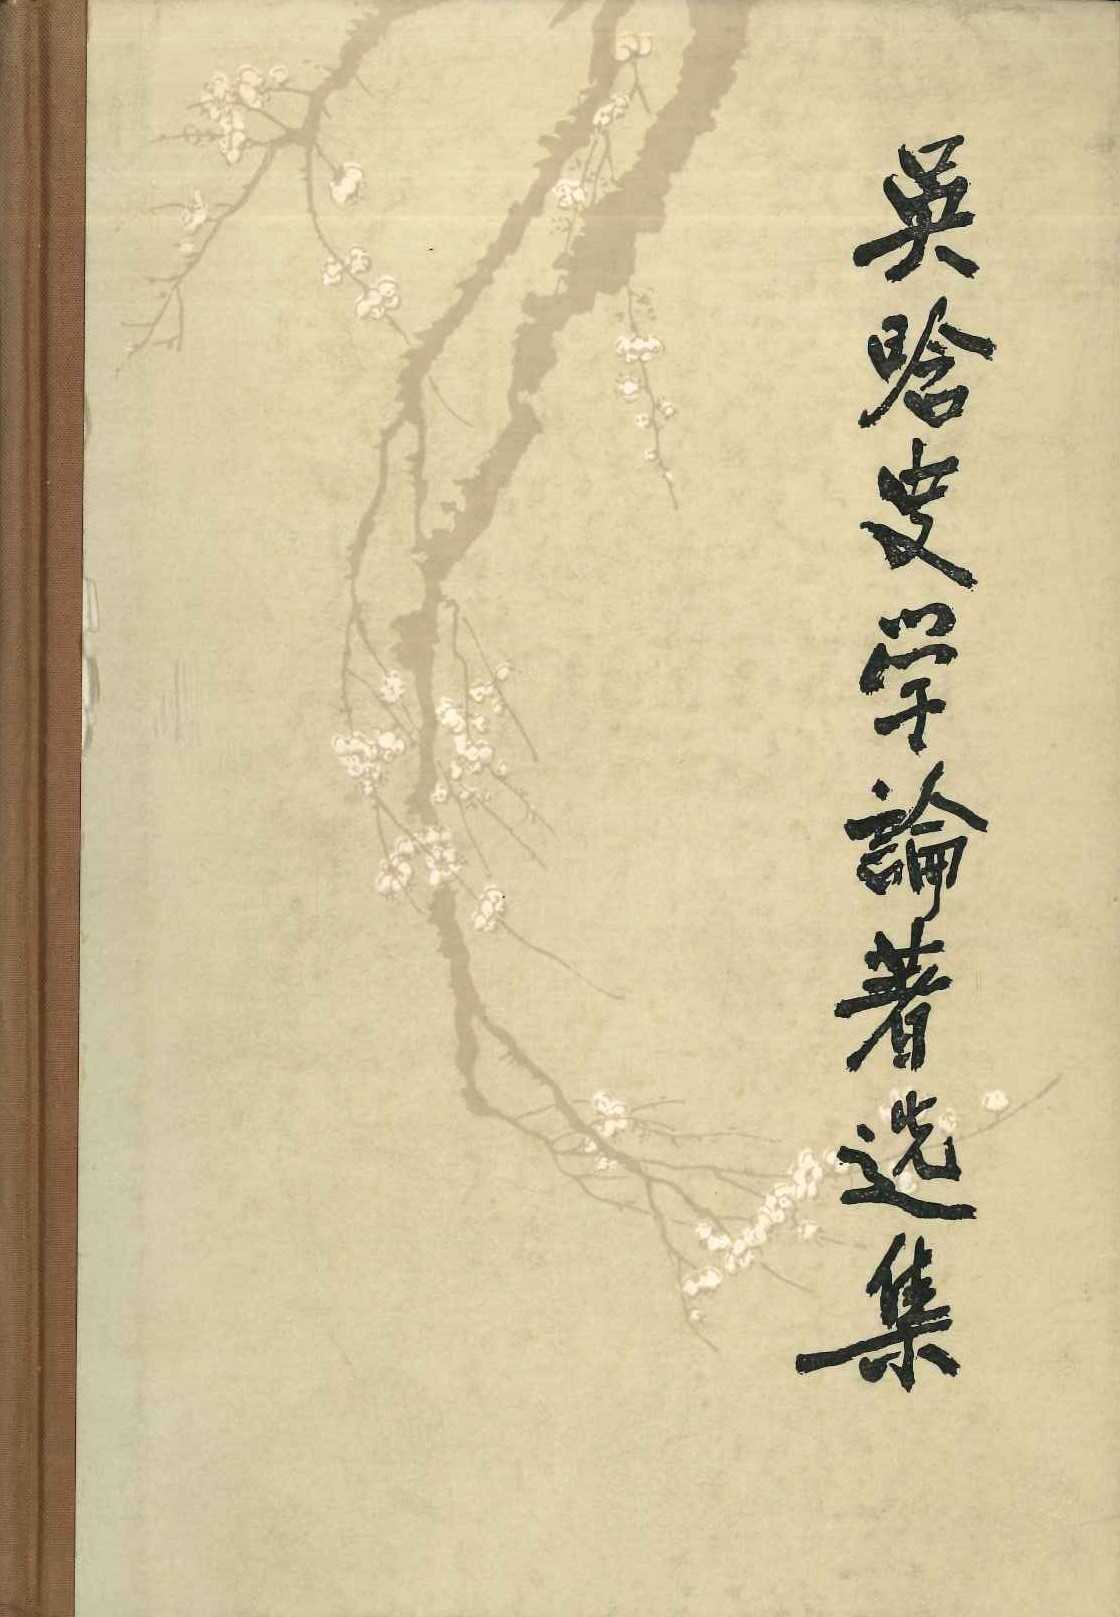 吴晗史学論著选集